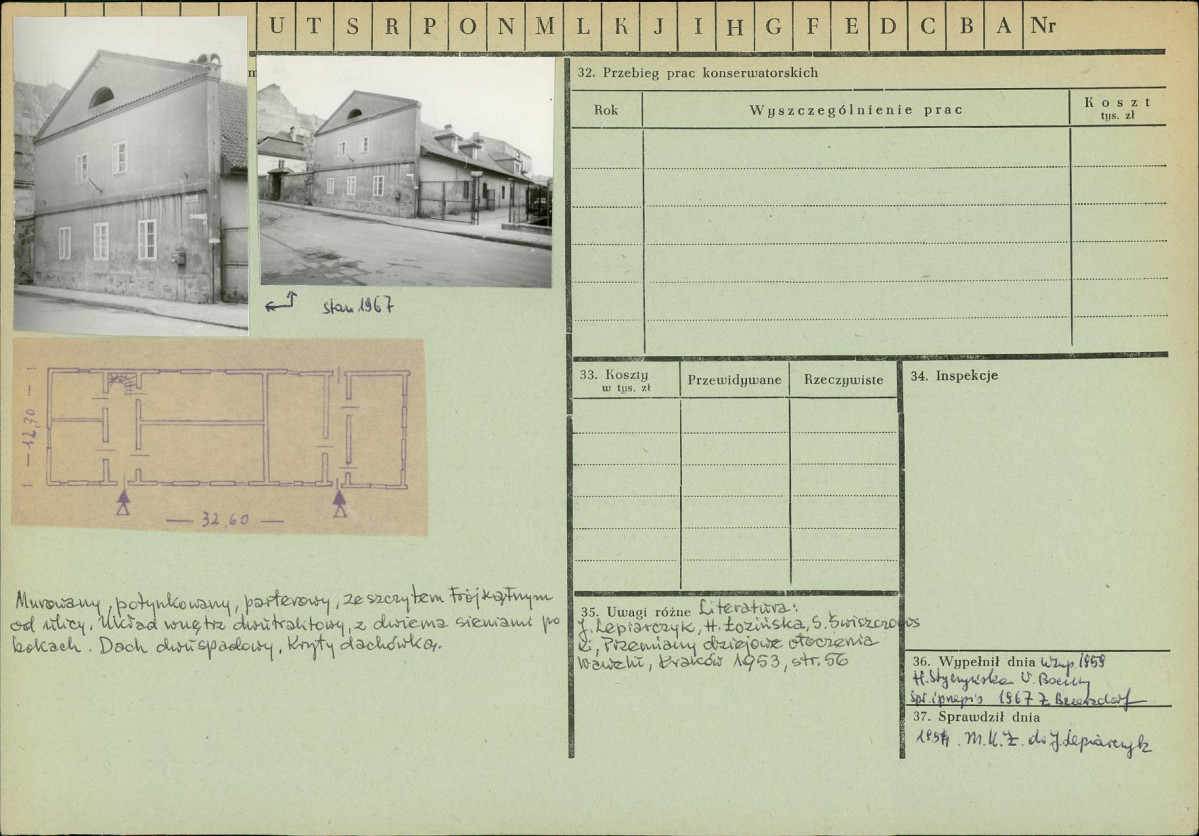 U T S R P O N M L K J I H G F E D C B A Nr
stan 1967
12,70
32,60
Murowany, potynkowany, parterowy, ze szczytem trójkątnym
od ulicy. Układ wnętrz dwutraktowy, z dwiema sieniami po
bokach. Dach dwuspadowy, kryty dachówką.
32. Przebieg prac konserwatorskich
Rok Wyszczególnienie prac Koszt
tys. zł
33. Koszty
w tys. zł
Przewidywane Rzeczywiste
34. Inspekcje
35. Uwagi różne Literatura:
J. Lepiarczyk, H. Łozińska, S. Świszczows
ki, Przemiany dziejowe otoczenia
Wawelu, Kraków 1953, str. 56
36. Wypełnił dnia 1959
H. Styczyńska
1967 Z. Beiersdorf
37. Sprawdził dnia
M.K.Z. dr J. Lepiarczyk